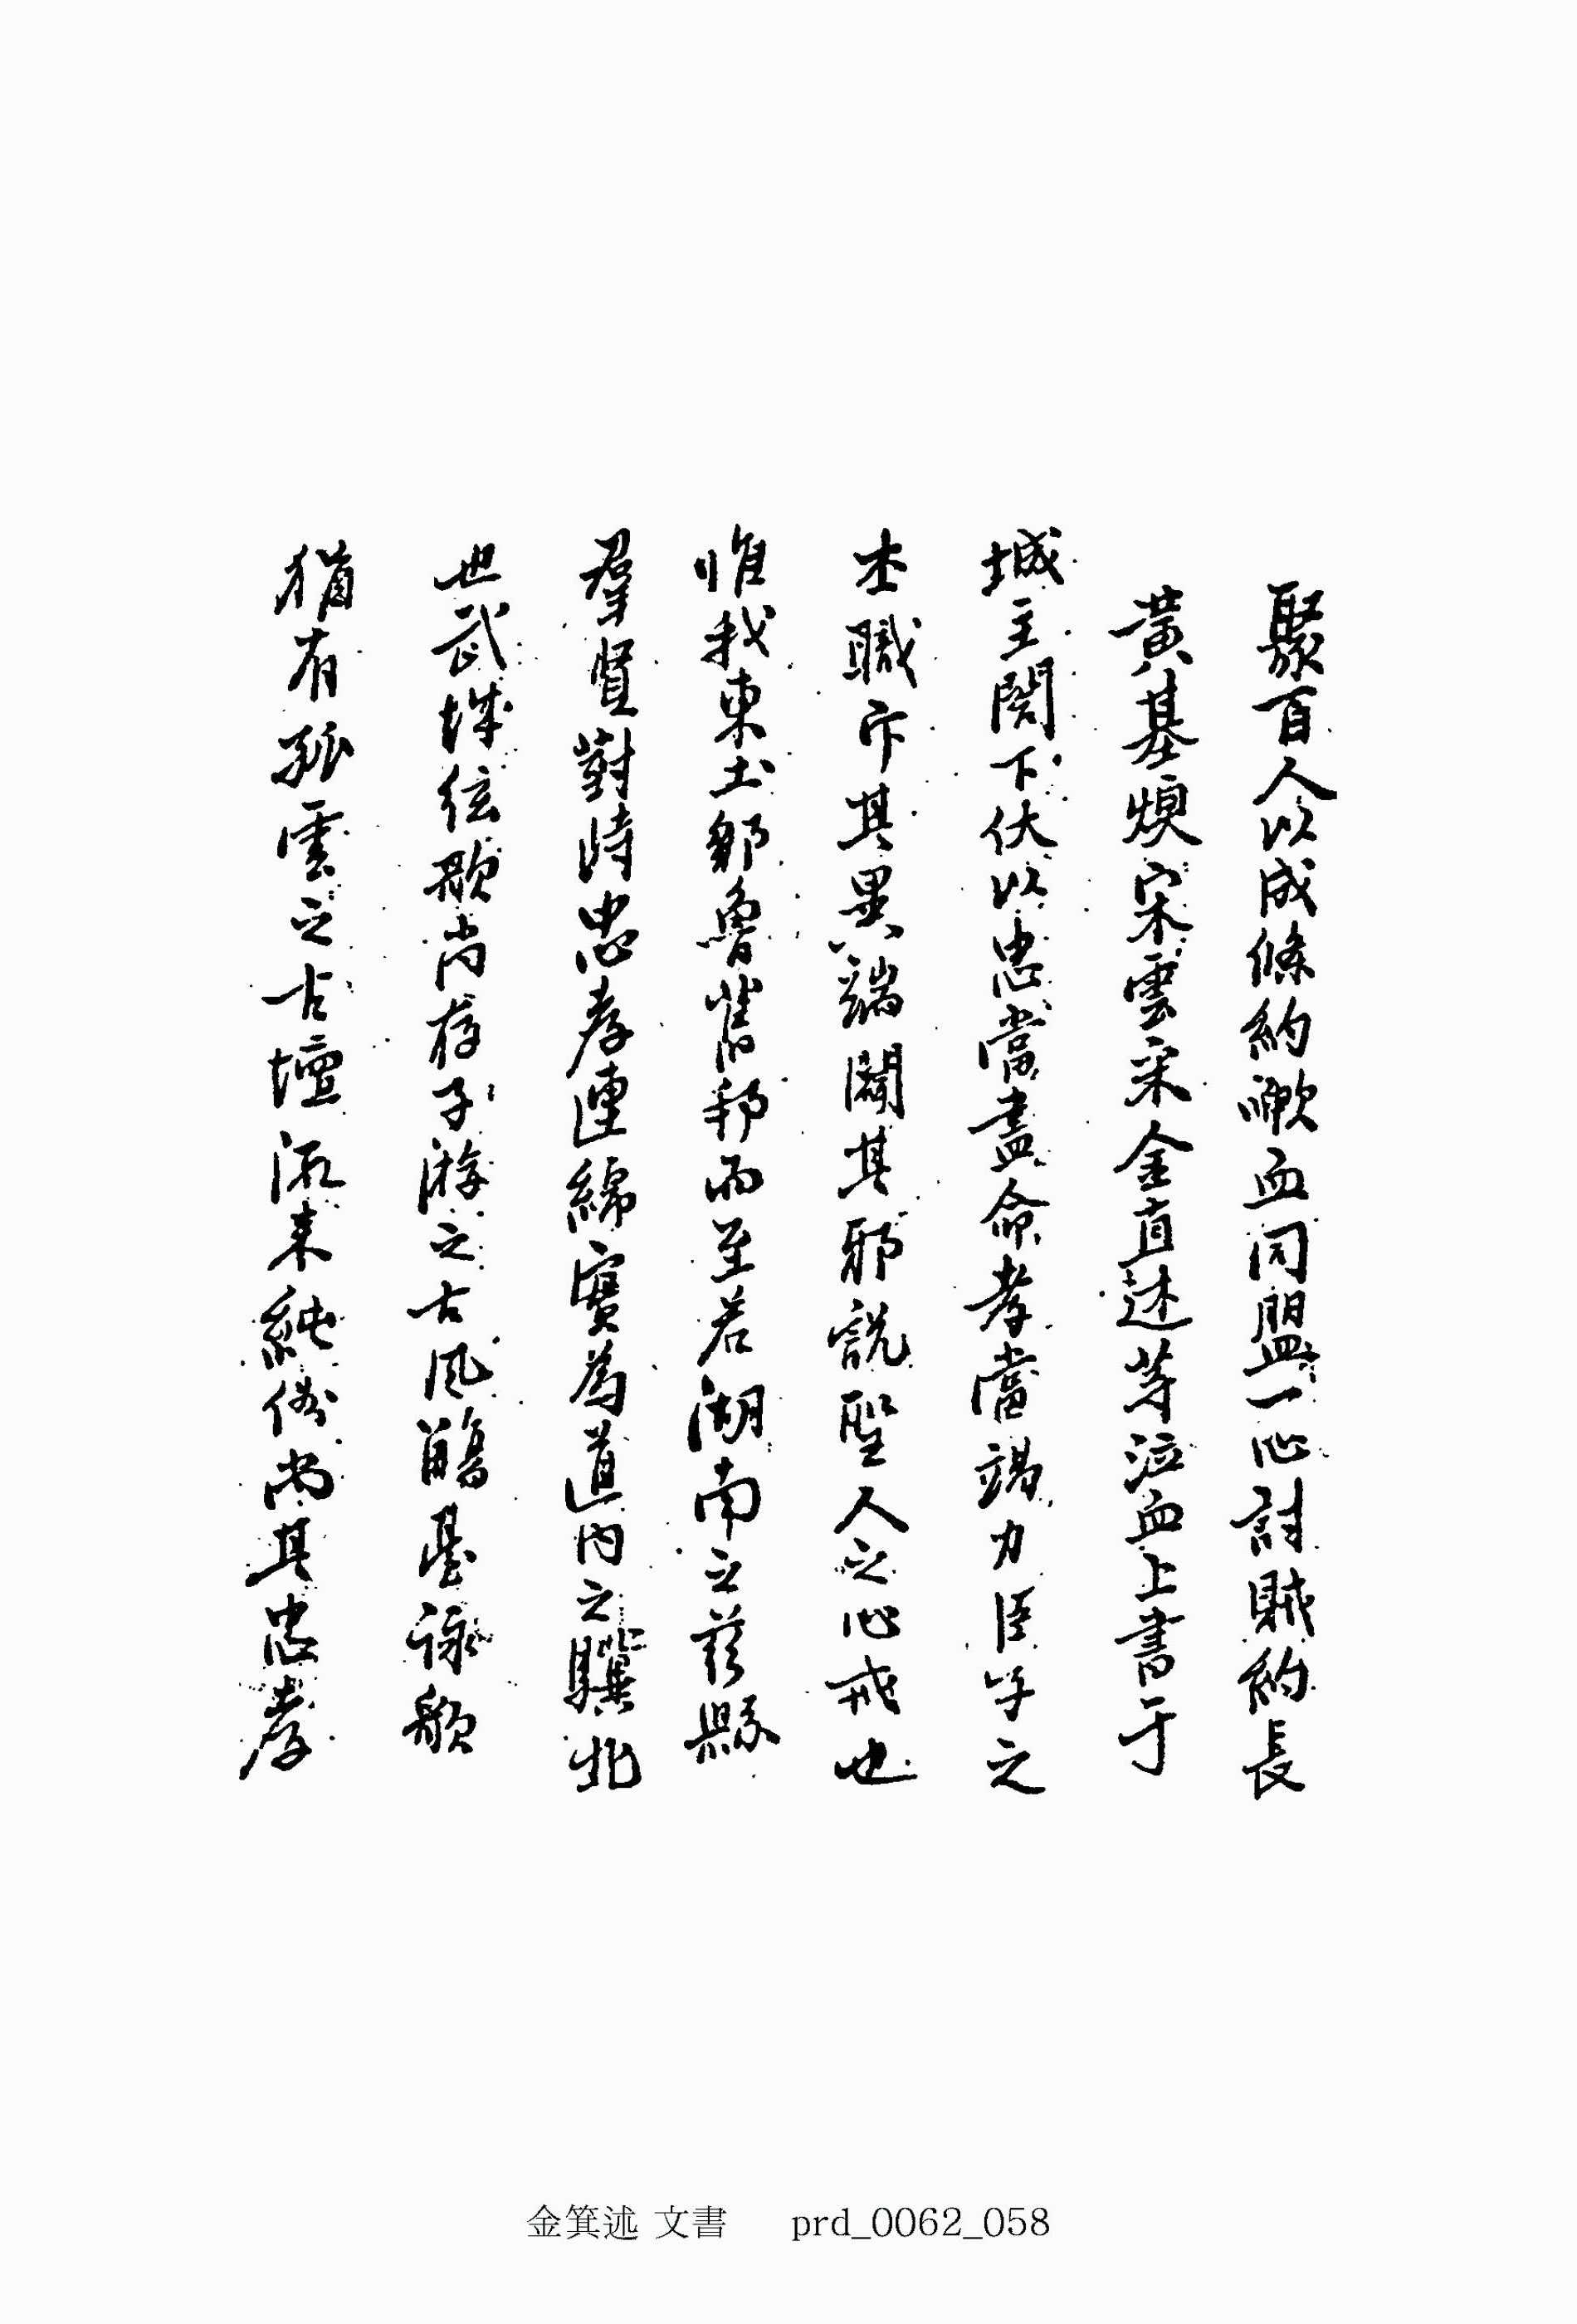 聚百人以成條約歃血同盟一心討賊約長
黃基煥宋雲采金直述等泣血上書于
城主閤下伏以忠當盡命孝當竭力臣子之
本職斥其異端闢其邪說聖人之心戒也
惟我東土鄒魯舊邦而至若湖南之茲縣
羣賢對峙忠孝連綿實為道內之驥北
也武城弦歌尚存子游之古風觴臺詠歌
猶有孤雲之古壇流來純俗尚其忠孝
金箕述 文書 prd_0062_058